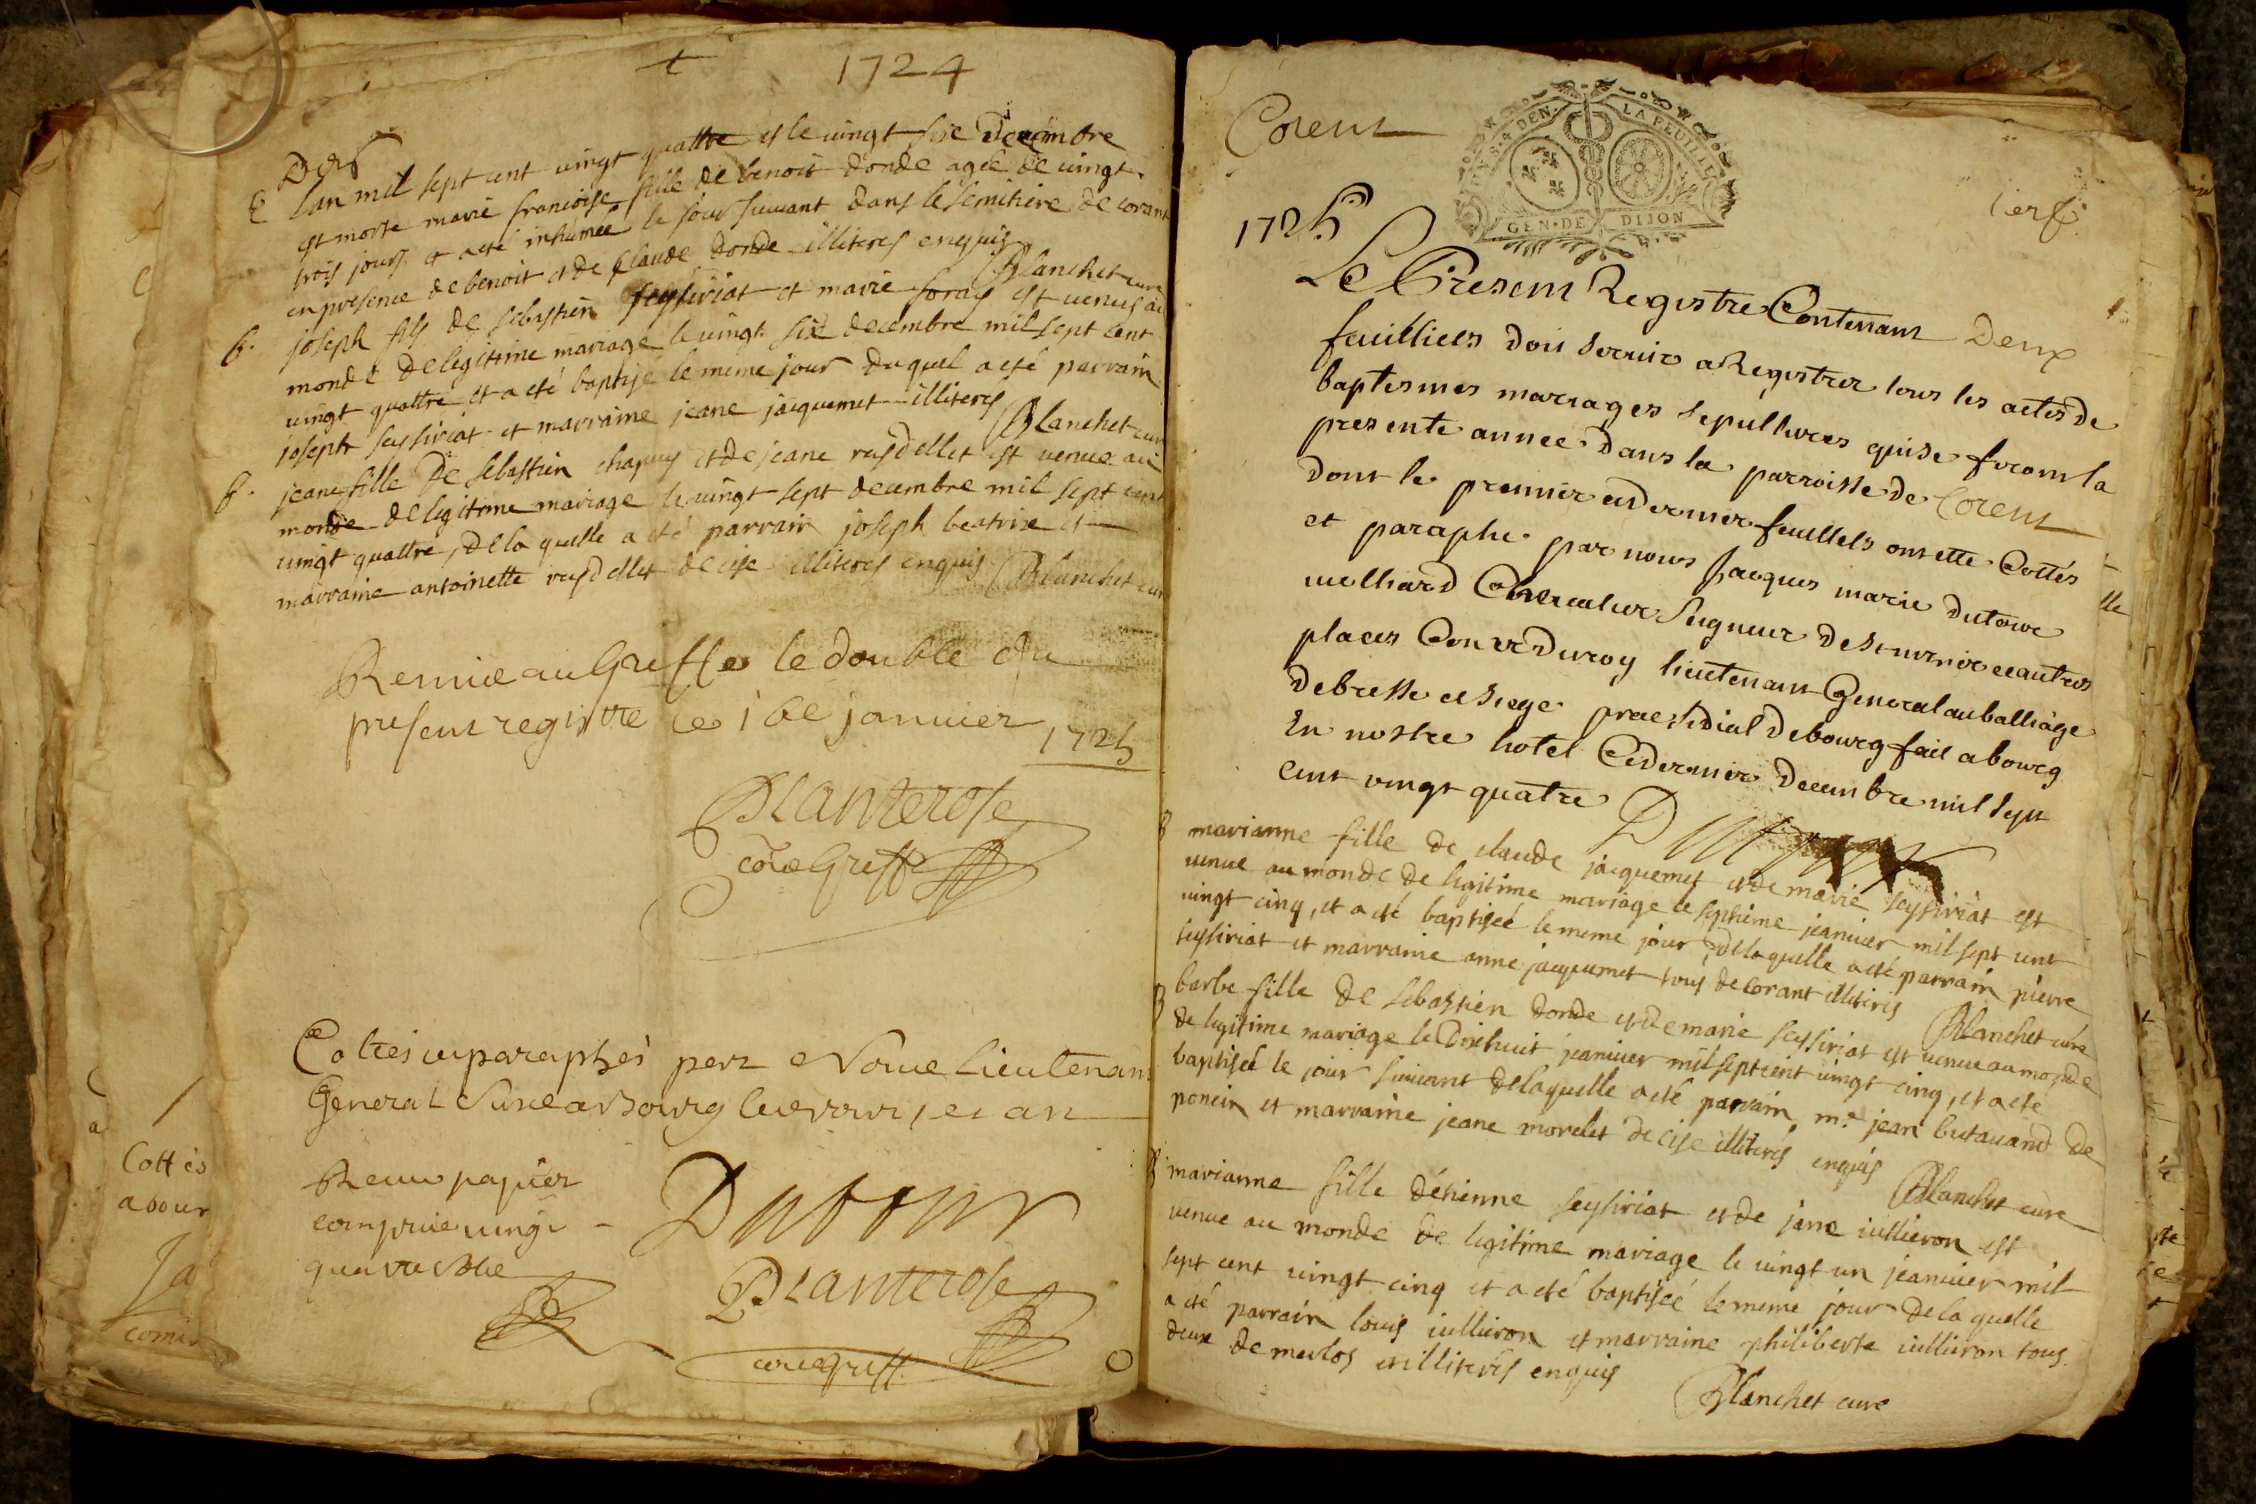 1724
E lan mil sept cent vingt quattre et le vingt sixe decembre
est morte marie francoise fille de benoit donde agée de vingt
trois jours et a eté inhumée le jour suivant dans le semitiere de corant
en presence de benoit et de claude donde illiterés enquis
Blanchet curé
b. joseph fils de sebastien seysiriat et marie foray est venus au
monde de legitime mariage le vingt six decembre mil sept cent
vingt quattre et a eté baptisé le meme jour duquel a eté parrain
joseph seysiriat et marraine jeane jacquemet illiterés
Blanchet cur
b. jeane fille de sebastien chapuy et de jeane reydellet est venue au
monde de legitime mariage le vingt sept decembre mil sept cent
vingt quattre, de la quelle a eté parrain joseph beatrix et
marraine antoinette reydellet de cise illiterés enquis Blanchet cur
Remie au Greffe le double du
present registre le 16e janvier
1725
Planterose
Com Greffe
Cottés et paraphés par Nous Lieutenant
General
Dutour
Receu papier
compris vingt
Planterose
com greff
Cottés
a bour
Corent
MOYENS & DEN. LA FEUILLE
GEN. DE DIJON
1725
Le Present Registre Contenant Deux
feuilliets doit servir a Registrer tous les actes de
baptesmes mariages sepultures qui se feront la
presente annee dans la parroisse de Corent
dont le premier et dernier feuillets ont ette Cottés
et paraphé par nous Jacques marie dutour
vuilliard Chevalier Seigneur de Sturnier et autres
places Conser du roy lieutenant General au balliage
de bresse et siege praesidial de bourg fait a bourg
En nostre hotel Ce dernier decembre mil sept
cent vingt quatre
Dutour
B marianne fille de claude jacquemet et de marie seysiriat est
venue au monde de legitime mariage le septieme jeanvier mil sept cent
vingt cinq, et a eté baptiseé le meme jour, de laquelle a eté parrain pierre
seysiriat et marraine anne jacquemet tous de corant illiterés
Blanchet curé
B barbe fille de sebastien donde et de marie seysiriat est venue au monde
de legitime mariage le dixhuit jeanvier mil sept cent vingt cinq, et a eté
baptiseé le jour suivant de laquelle a eté parrain mr. jean butavand de
poncin et marraine jeane morelet de cise illiterés enquis
Blanchet curé
B marianne fille détienne seysiriat et de jane iullieron est
venue au monde de legitime mariage le vingt un jeanvier mil
sept cent vingt cinq et a eté baptiseé le meme jour de la quelle
a eté parrain louis iullieron et marraine philiberte iullieron tous
deux de merlos illiterés enquis
Blanchet curé